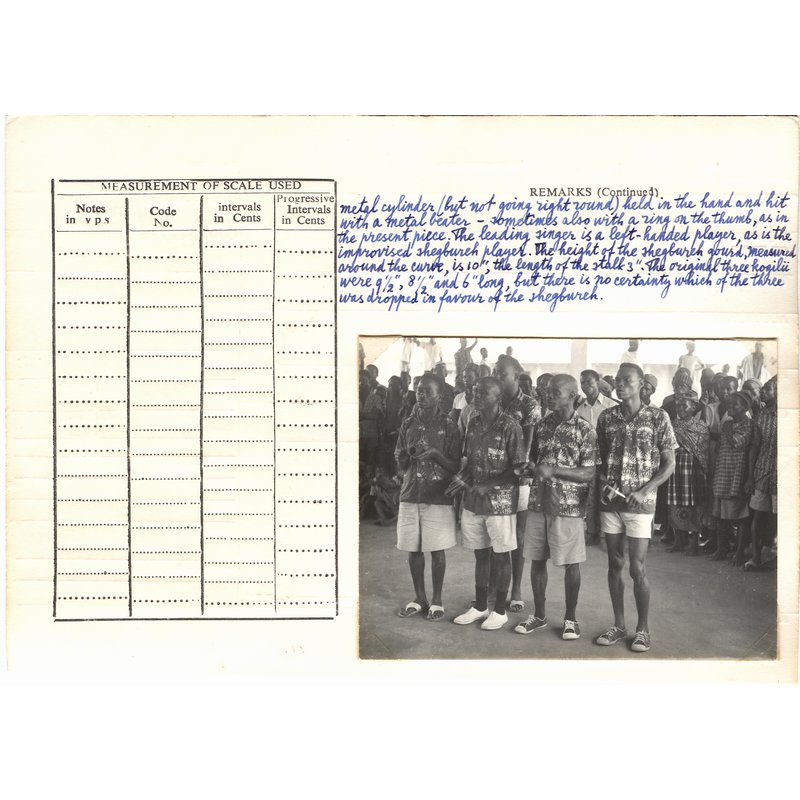 MEASUREMENT OF SCALE USED
Notes in vps
Code No.
intervals in Cents
Progressive Intervals in Cents
REMARKS (Continued)
metal cylinder (but not going right round) held in the hand and hit
with a metal beater – sometimes also with a ring on the thumb, as in
the present piece. The leading singer is a left-handed player, as is the
improvised shegbureh player. The height of the shegbureh gourd, measured
around the curve, is 10", the length of the stalk 3". The original three kogilii
were 9½", 8½" and 6" long, but there is no certainty which of the three
was dropped in favour of the shegbureh.